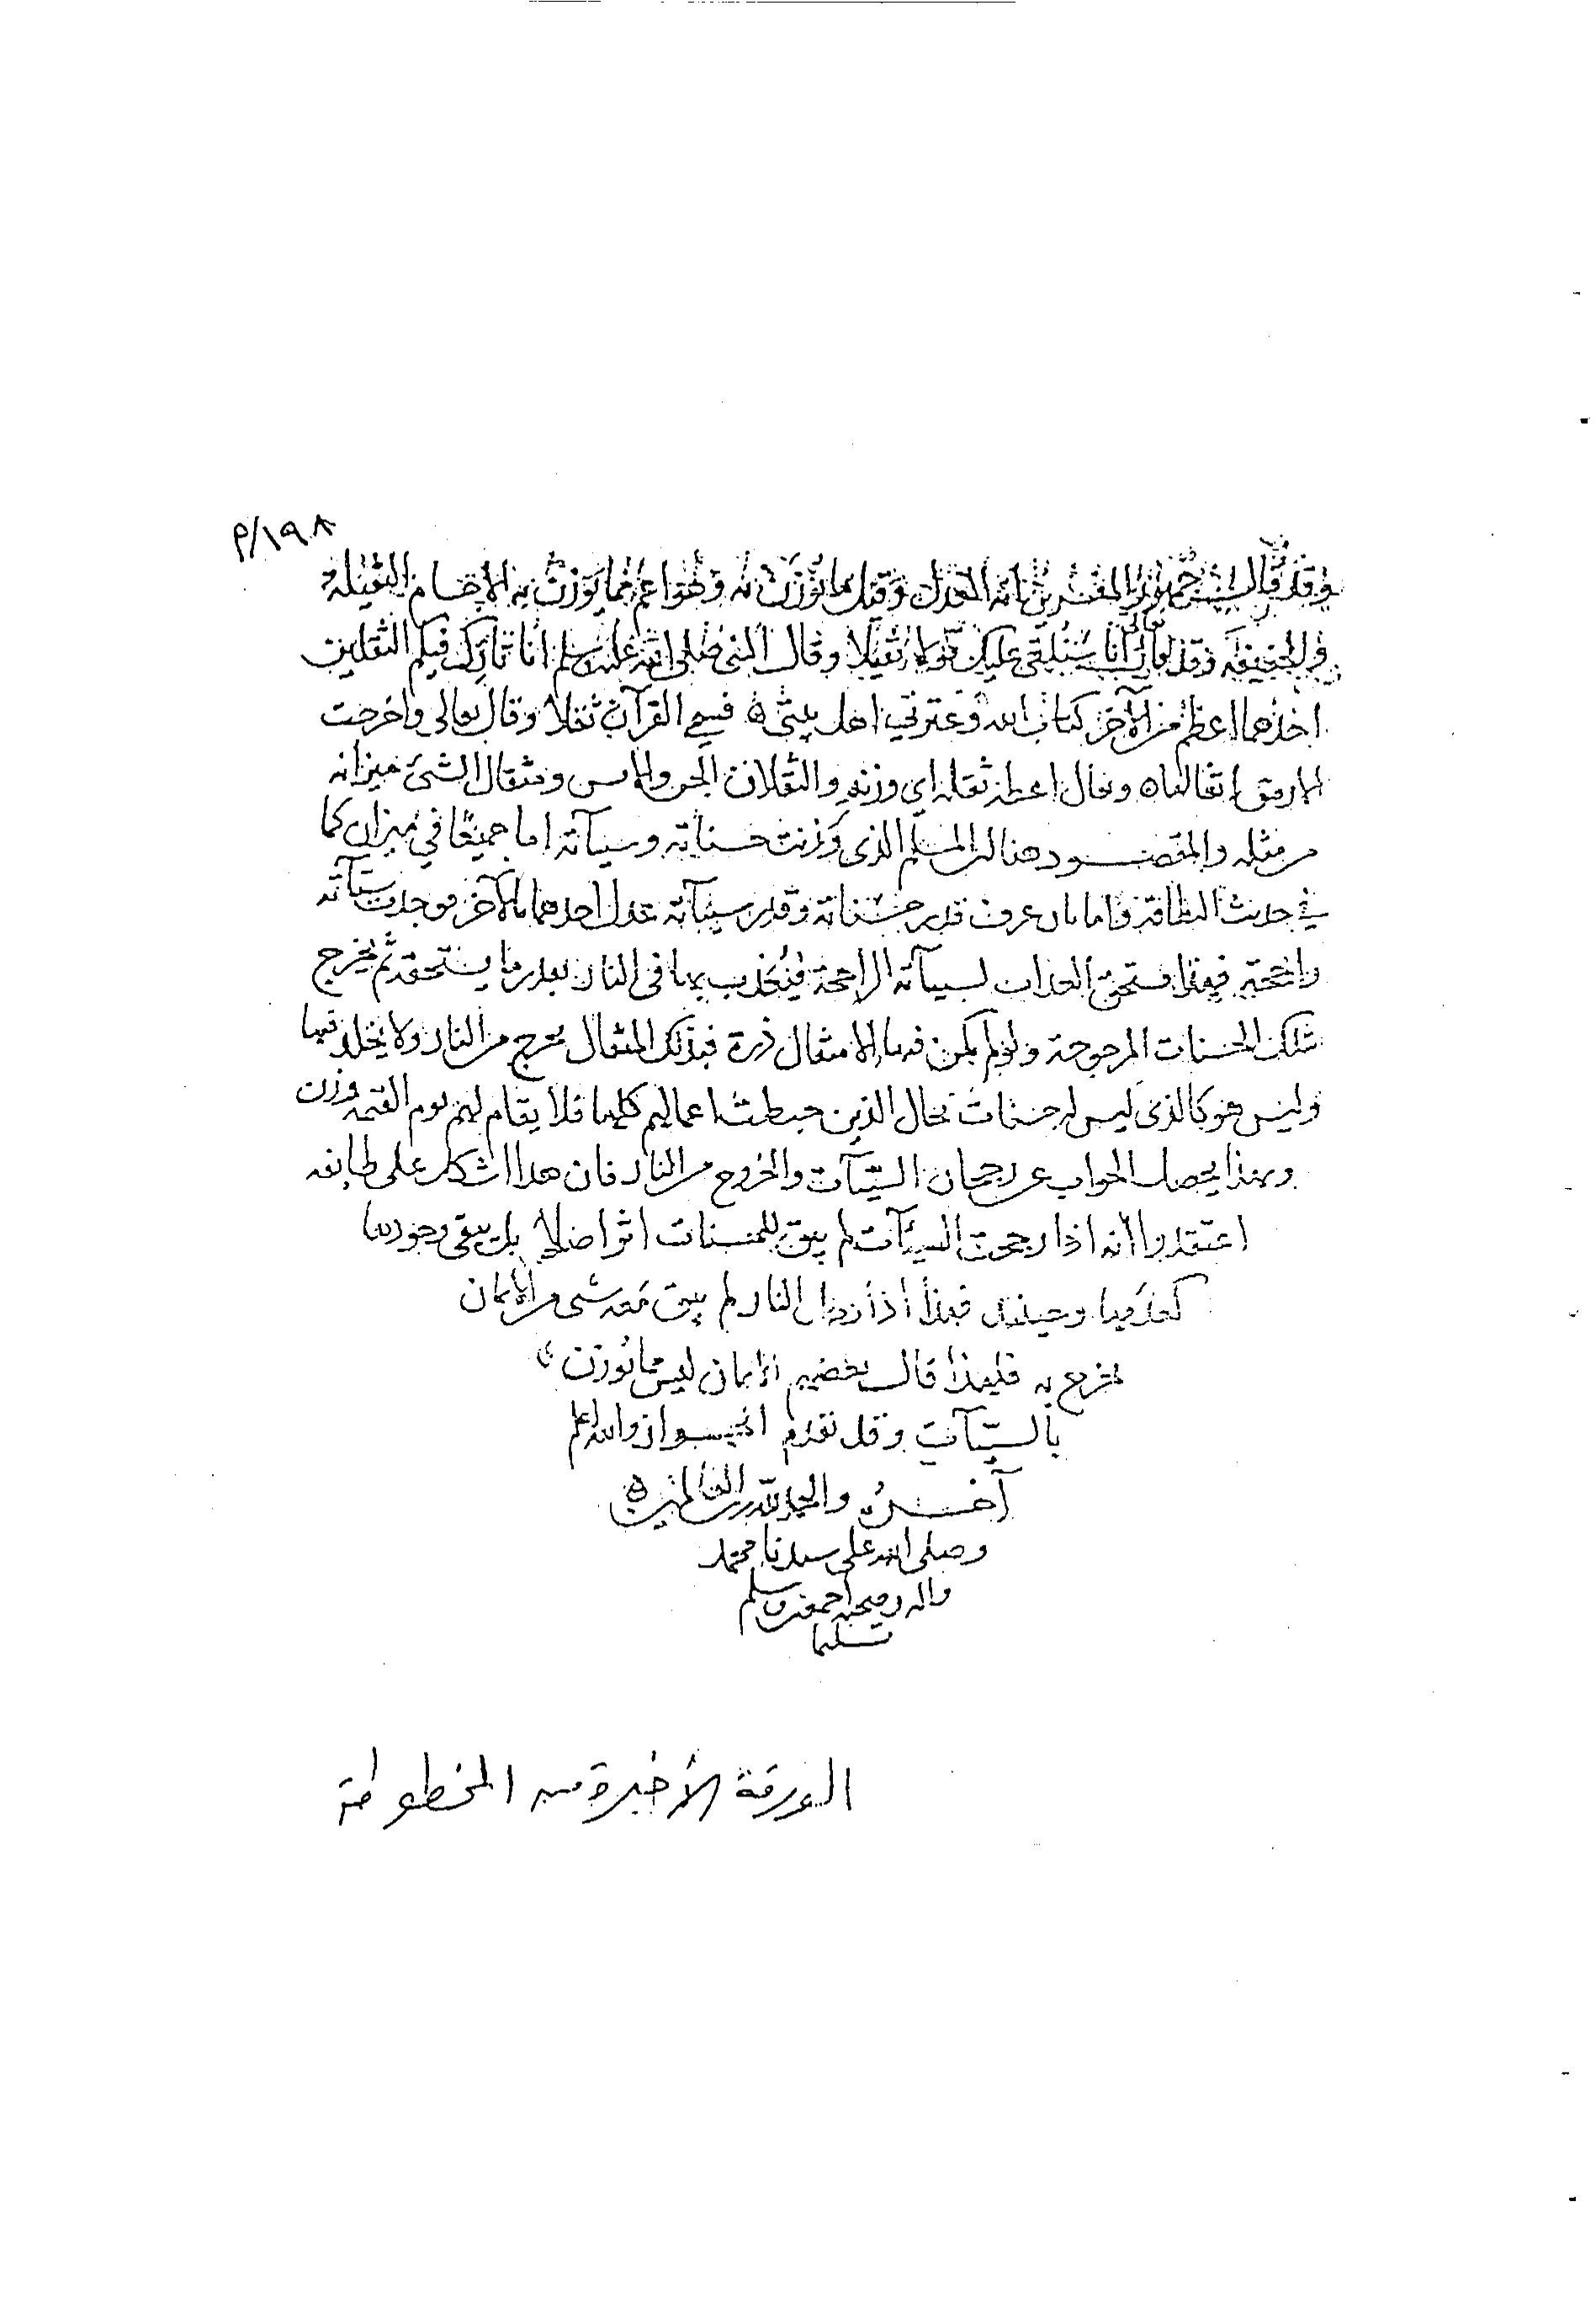 م/١٩٨
وقد قال جمهور المفسرين انه العدل وقيل ما توزن به وهو اعم مما يوزن به الاجسام الثقيلة
والخفيفة وقد قال تعالى انا سنلقي عليك قولا ثقيلا وقال النبي صلى الله عليه وسلم انا تارك فيكم الثقلين
احدهما اعظم من الآخر كتاب الله وعترتي اهل بيتي ٥ فسمي القرآن ثقلا وقال تعالى واخرجت
الارض اثقالها ٥ ويقال اعطه ثقله اي وزنه والثقلان الجن والانس ومثقال الشئ ميزانه
من مثله والمقصود هنا ان المسلم الذي وزنت حسناته وسيآته اما جميعًا في ميزان كما
في حديث البطاقة واما بان عرف قدر حسناته وقدر سيآته عدل احدهما بالآخر فوجدت سيآته
راجحة فهذا استحق العذاب لسيآته الراجحة فيُعَذب بها في النار بعد ما يستحقه ثم يخرج
بتلك الحسنات المرجوحة ولو لم يكن فيها الا مثقال ذرة فبذلك المثقال يخرج من النار ولا يخلد فيها
وليس هو كالذي ليس له حسنات كحال الذين حبطت اعمالهم كلها فلا يقام لهم يوم القيمة وزن
وبهذا يحصل الجواب عن رجحان السيّآت والخروج من النار فان هذا اشكل على طايفه
اعتقدوا انه اذا رجحت السيّآت لم يبق للحسنات اثر اصلا بل يبقى وجودها
كعدمها وحينئذ فهذا اذا دخل النار لم يبق معه شئ من الايمان
يخرج به فلهذا قال بعضهم الايمان ليس مما توزن
بالسيّآت وقد تقدم والله اعلم
آخـره والحمد لله رب العالمين ٥
وصلى الله على سيدنا محمد
واله وصحبه اجمعين وسلم
تسليما
الورقة الأخيرة من المخطوطة